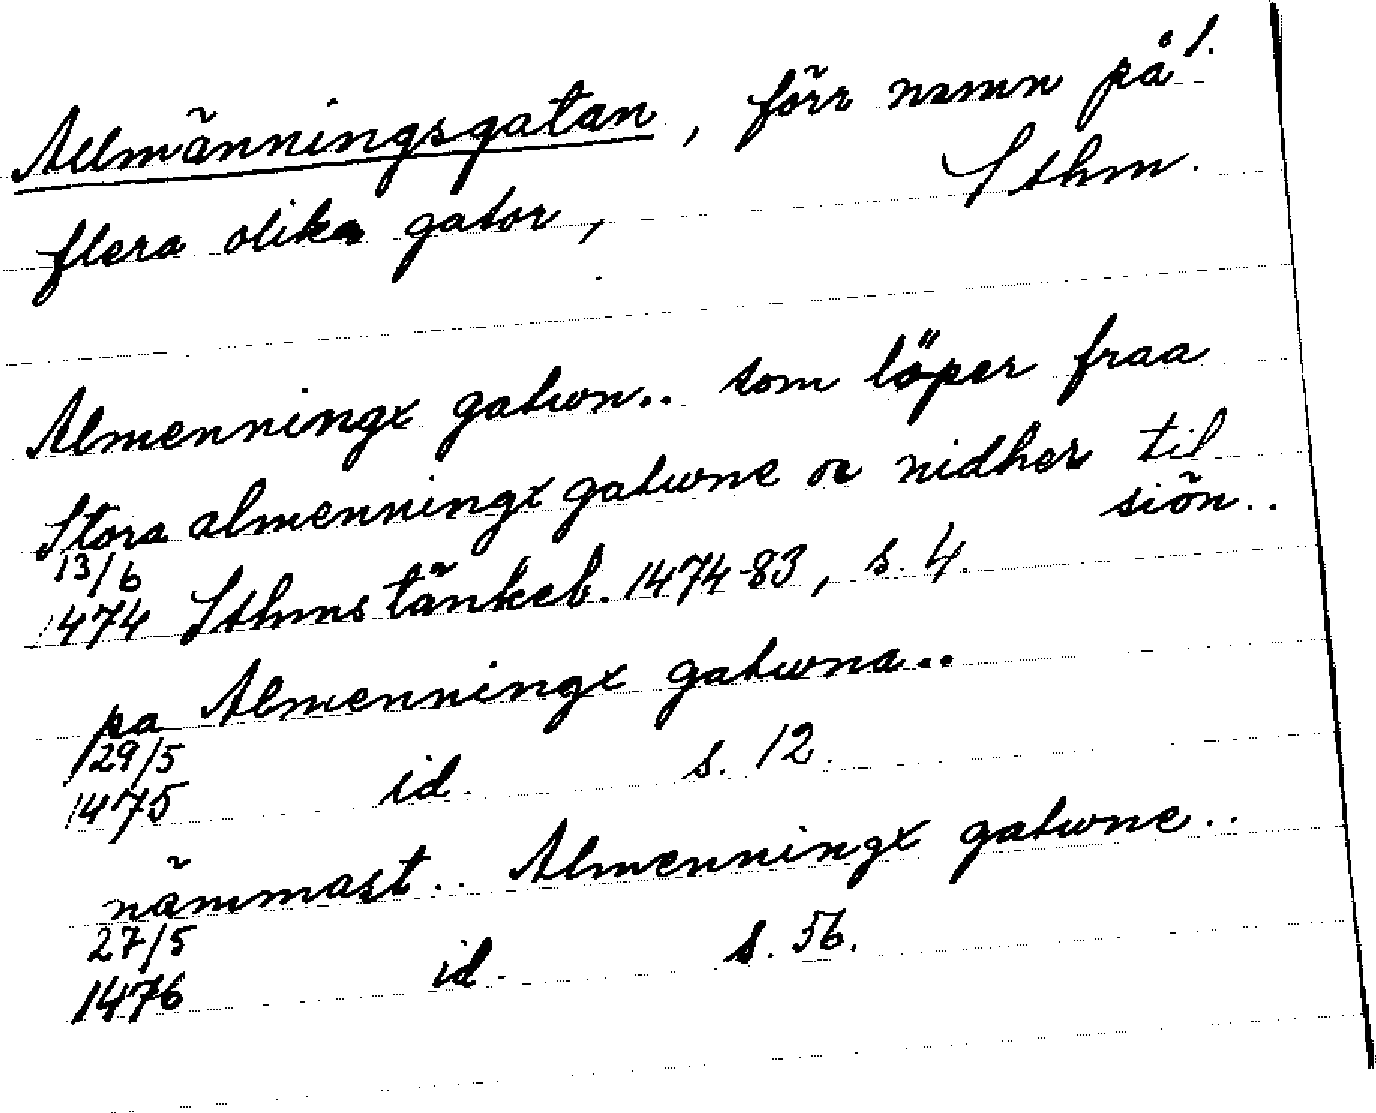 1.
Allmänningsgatan, förr namn på
flera olika gator, Sthm.
Almenningx gatwon.. som löper fraa
Stora almenningx gatwone oc nidher til
siön..
13/6
1474 Sthms tänkeb. 1474-83, s. 4.
pa Almenningx gatwona..
29/5
1475 id. s. 12.
nämmast.. Almenningx gatwone..
27/5
1476 id. s. 56.